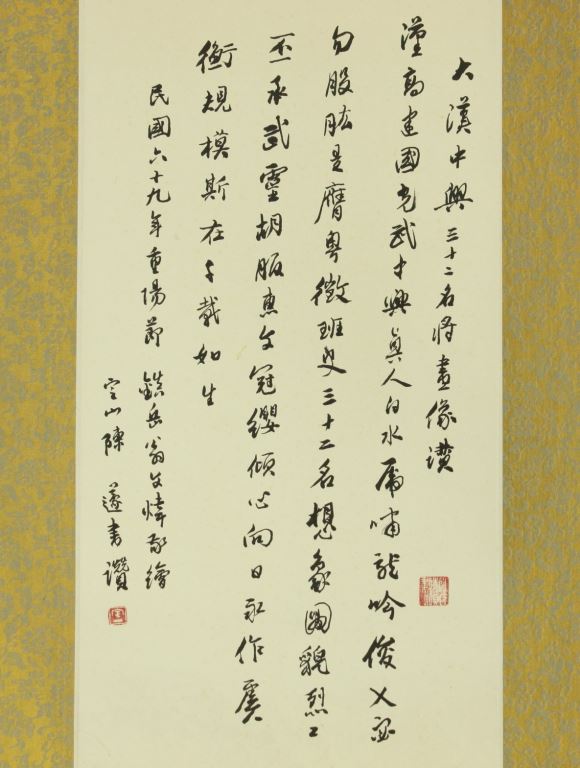 大漢中興三十二名將畫像讚
漢高建國光武中興真人白水虎嘯龍吟俊乂密
勿股肱是膺粵徵班史三十二名想象圖貌烈烈
丕承武靈胡服惠文冠纓傾心向日永作屏
衡規模斯在千載如生
民國六十九年重陽節 鎮岳翁文煒敬繪
定山陳蘧書讚